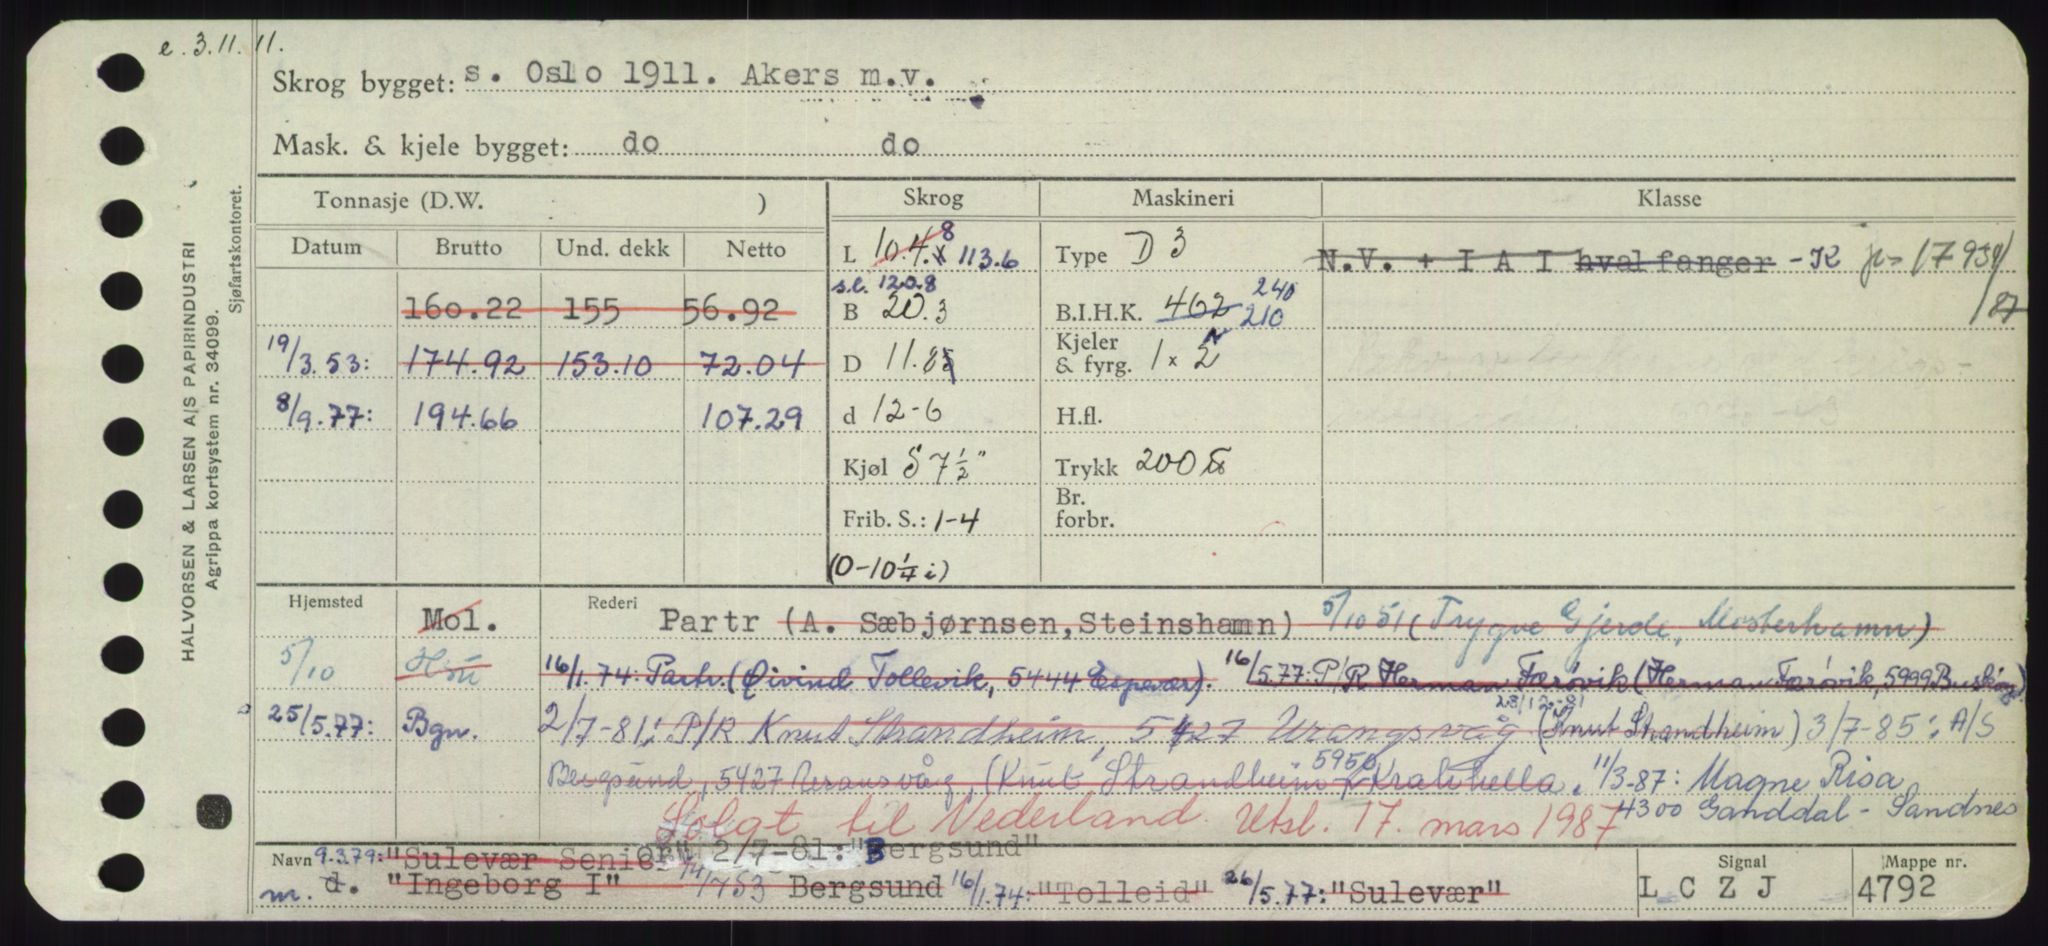 e. 3.11.11.
Skrog bygget: s. Oslo 1911. Akers m.v.
Mask. & kjele bygget: do do
Tonnasje (D.W. ) Skrog Maskineri Klasse
Datum Brutto Und. dekk Netto
L 10.4. 8 113.6 Type D 3 N.V. + I A I hvalfanger - K 1793
s.l. 120.8
160.22 155 56.92 B 20.3 B.I.H.K. 462 240 210
19/3.53: 174.92 153.10 72.04 D 11.8 Kjeler & fyrg. 1 x 2
8/9.77: 194.66 107.29 d 12-6 H.fl.
Kjøl S 7 1/2" Trykk 200
Frib. S.: 1-4 Br. forbr.
(0-10 1/4 i)
Hjemsted Mol. Rederi Partr (A. Sæbjørnsen, Steinshamn) 5/10 51 (Trygve Gjerde, Mosterhamn)
5/10 16/1.74: Partr. (Øivind Tollevik, 5444 Espevær). 16/5.77: P/R Herman Færøvik (Herman Færøvik, 5999
25/5.77: Bgn. 2/7-81: P/R Knut Strandheim, 5427 Urangsvåg 23/12-81 (Knut Strandheim) 3/7-85: A/S
Bergsund, 5427 Urangsvåg (Knut Strandheim 5956 11/3-87: Magne Risa
4300 Ganddal - Sandnes
Solgt til Nederland. Utsl. 17. mars 1987
Navn 9.3.79: "Sulevær Senior" 2/7-81: "Bergsund"
m. d. "Ingeborg I" 753 Bergsund 16/1.74: "Tolleid" 26/5.77: "Sulevær"
Signal L C Z J
Mappe nr. 4792
HALVORSEN & LARSEN A|S PAPIRINDUSTRI
Agrippa kortsystem nr. 34099.
Sjøfartskontoret.